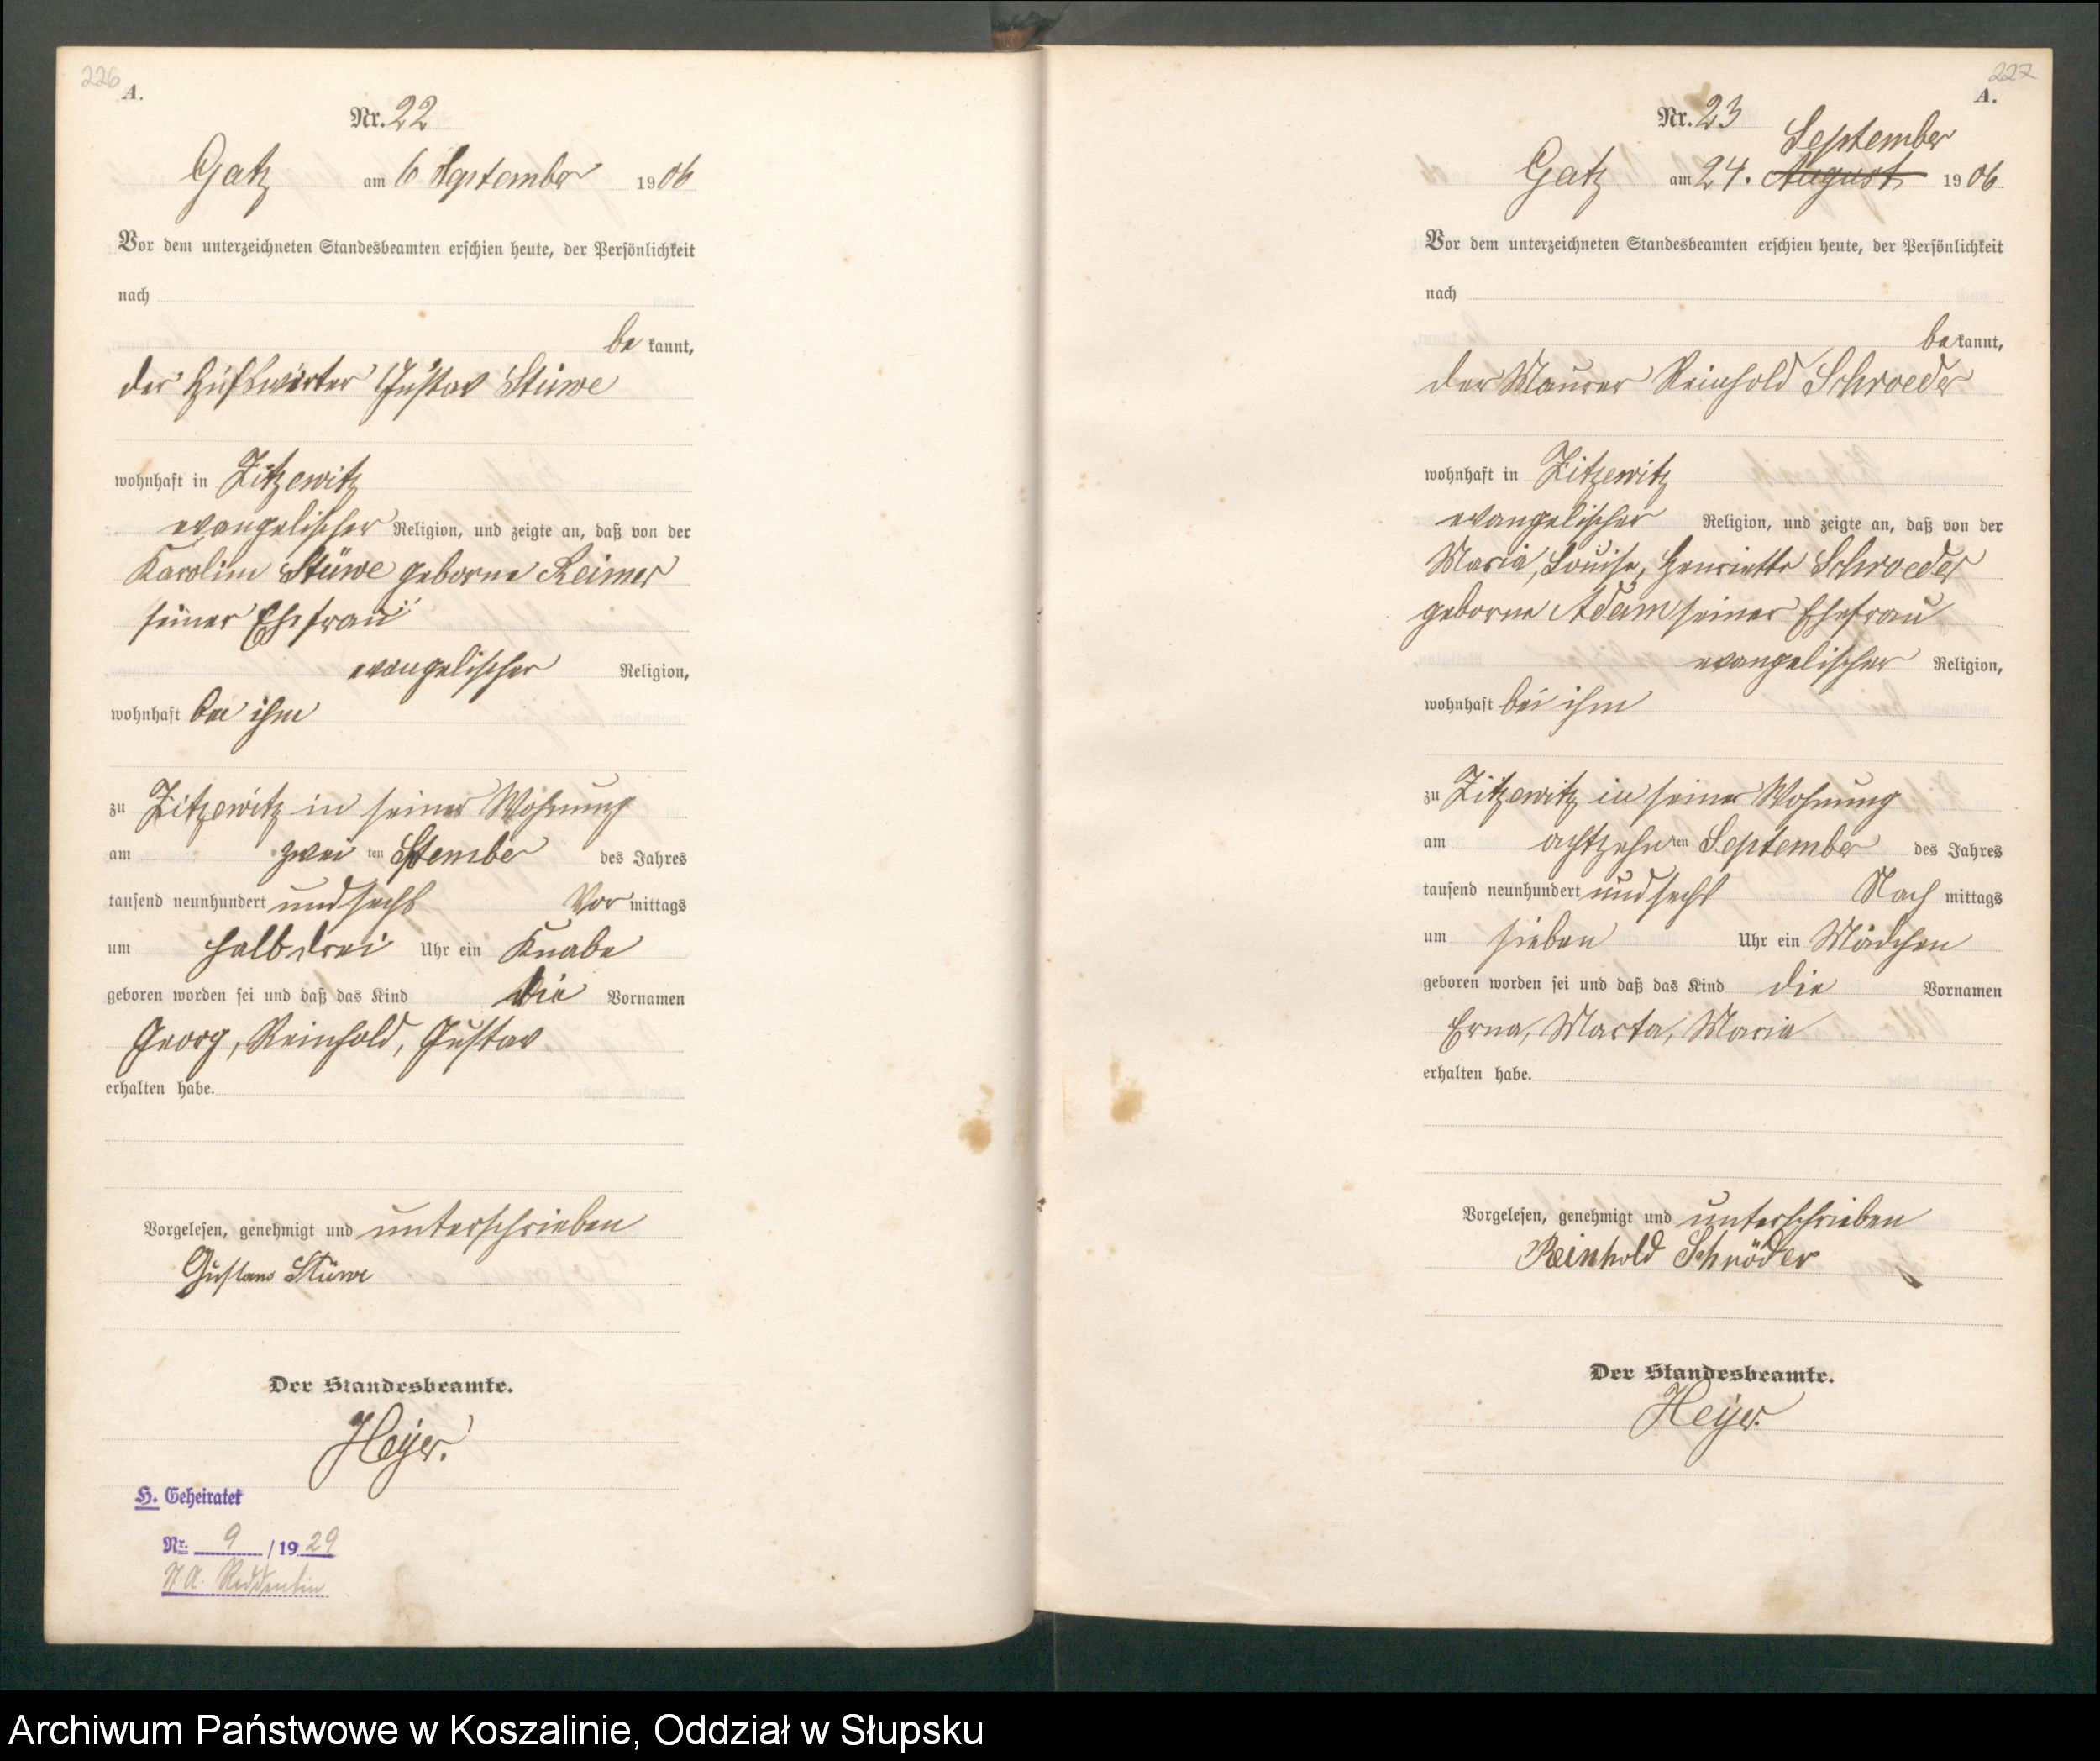 226
A.
Nr. 22
Gatz am 6 September 1906
Vor dem unterzeichneten Standesbeamten erschien heute, der Persönlichkeit
nach
be kannt,
der Gustav Stüwe
wohnhaft in Zitzewitz
evangelischer Religion, und zeigte an, daß von der
Karoline Stüwe geborne Reimer
seiner Ehefrau
evangelischer Religion,
wohnhaft bei ihm
zu Zitzewitz in seiner Wohnung
am zwei ten Stember des Jahres
tausend neunhundert und sechs Vor mittags
um halb drei Uhr ein Knabe
geboren worden sei und daß das Kind die Vornamen
Georg, Reinhold, Gustav
erhalten habe.
Vorgelesen, genehmigt und unterschrieben
Gustav Stüwe
Der Standesbeamte.
Heyer.
H. Geheiratet
Nr. 9 / 1929
Reddentin
227
A.
Nr. 23
September
Gatz am 24. August 1906
Vor dem unterzeichneten Standesbeamten erschien heute, der Persönlichkeit
nach
be kannt,
der Maurer Reinhold Schroeder
wohnhaft in Zitzewitz
evangelischer Religion, und zeigte an, daß von der
Maria, Louise, Henriette Schroeder
geborne Adam seiner Ehefrau
evangelischer Religion,
wohnhaft bei ihm
zu Zitzewitz in seiner Wohnung
am achtzehn ten September des Jahres
tausend neunhundert und sechs Nach mittags
um sieben Uhr ein Mädchen
geboren worden sei und daß das Kind die Vornamen
Erna, Marta, Maria
erhalten habe.
Vorgelesen, genehmigt und unterschrieben
Reinhold Schröder
Der Standesbeamte.
Heyer.
Archiwum Państwowe w Koszalinie, Oddział w Słupsku